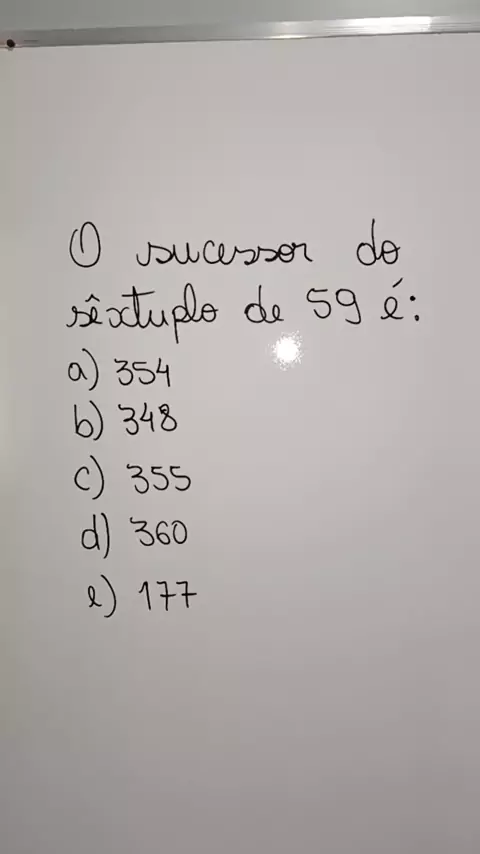 O sucessor do
sêxtuplo de 59 é:
a) 354
b) 348
c) 355
d) 360
e) 177